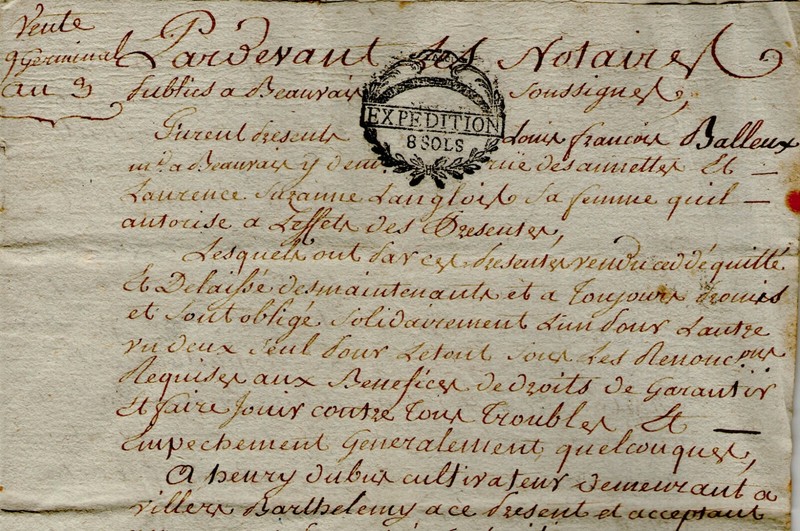 Vente
9 Germinal
an 3
Pardevant Les Notaires
publics a Beauvais soussignés,
EXPEDITION
8 SOLS
Furent presents Louis françois Balleux
md. a Beauvais y demt rue des annettes Et
Laurence Suzanne Langlois sa femme quil
autorise a L'effet des presentes,
Lesquels ont par ces presentes vendu cedé quitté
Et Delaissé desmaintenant et a Toujours promis
et sont obligé solidairement L'un pour L'autre
un deux seul pour Le tout sous Les Renoncons
Requises aux Benefices de droits de Garantir
Et faire Jouir contre Tous Troubles Et
Empechement Generalement quelconques,
A henry dubus cultivateur demeurant a
villers Barthelemy a ce present et acceptant